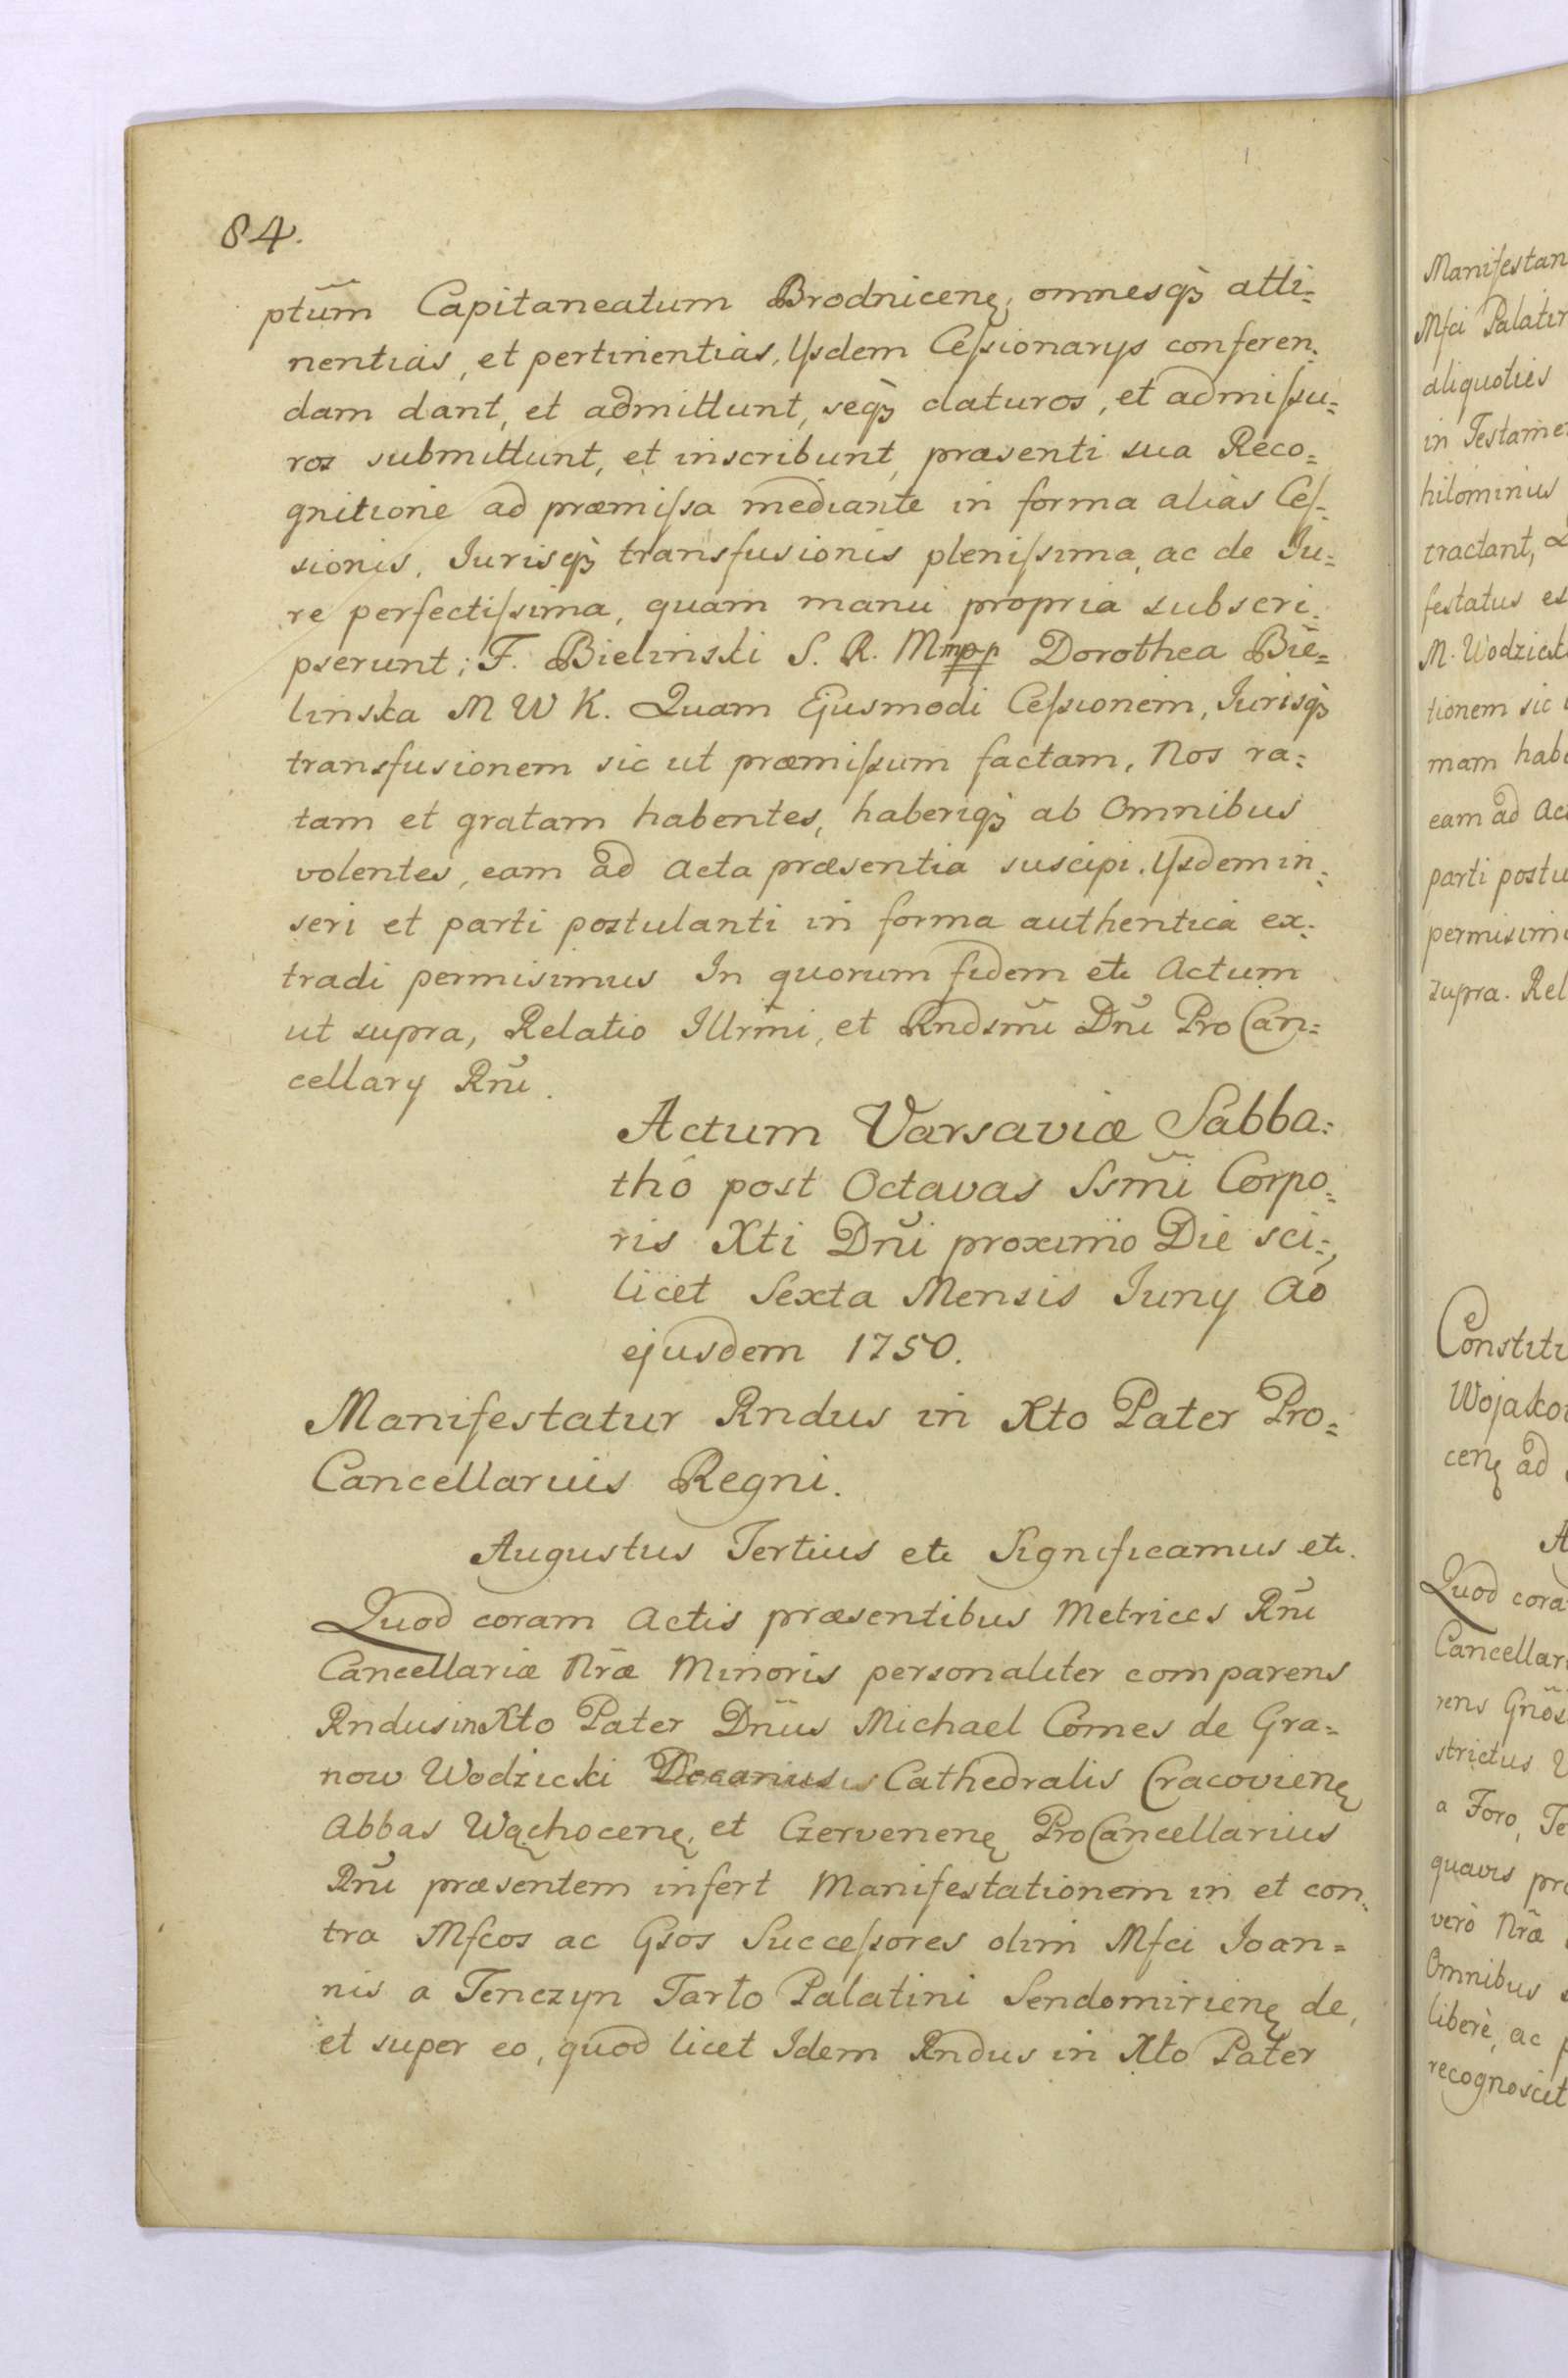 84.
ptum̃ Capitaneatum Brodnicenę, omnesqꝫ atti=
nentias, et pertinentias, Ysdem Ceſsionarys conferen=
dam dant, et admittunt, seqꝫ daturos, et admiſsu=
ros submittunt, et inscribunt, præsenti sua Reco=
gnitione ad præmiſsa mediante in forma alias Ceſ=
sionis, Jurisqꝫ transfusionis pleniſsima, ac de Ju=
re perfectiſsima, quam manu propria subscri=
pserunt; F. Bielinski S. R. M mpp Dorothea Bie=
linska M W K. Quam Ejusmodi Ceſsionem, Jurisqꝫ
transfusionem sic ut præmiſsum factam, Nos ra=
tam et gratam habentes, haberiqꝫ ab Omnibus
volentes, eam ad Acta præsentia suscipi, Ysdem in=
seri et parti postulanti in forma authentica ex=
tradi permisimus In quorum fidem etc Actum
ut supra, Relatio Illrm̃i, et Rndsmĩ Dnĩ Pro Can=
cellary Rnĩ.
Actum Varsaviæ Sabba=
thô post Octavas Ssm̃i Corpo=
ris Xti Dnĩ proximo Die sci=
licet Sexta Mensis Juny Aõ
ejusdem 1750.
Manifestatur Rndus in Xto Pater Pro=
Cancellarius Regni.
Augustus Tertius etc Significamus etc.
Quod coram Actis præsentibus Metrices Rnĩ
Cancellariæ Nræ̃ Minoris personaliter comparens
Rndus in Xto Pater Dnũs Michael Comes de Gra=
now Wodzicki Decanus Cathedralis Cracovienę
Abbas Wąchocenę, et Czervenenę ProCancellarius
Rnĩ præsentem infert Manifestationem in et con=
tra Mfcos ac Gsos Succeſsores olim Mfci Joan=
nis a Tenczyn Tarło Palatini Sendomirienę de,
et super eo, quod licet Idem Rndus in Xto Pater
Manifestan
Mfci Palatin
aliquoties
in Testame
hilominus
tractant,
festatus es
M. Wodzick
tionem sic
mam habe
eam ad Ac
parti postu
permisim
supra. Rel
Constitu
Wojako
cenę ad
Quod cora
Cancellar
rens Gnõs
strictus
a Foro, Te
quavis pr
verò Nrã
Omnibus
liberè, ac
recognoscit